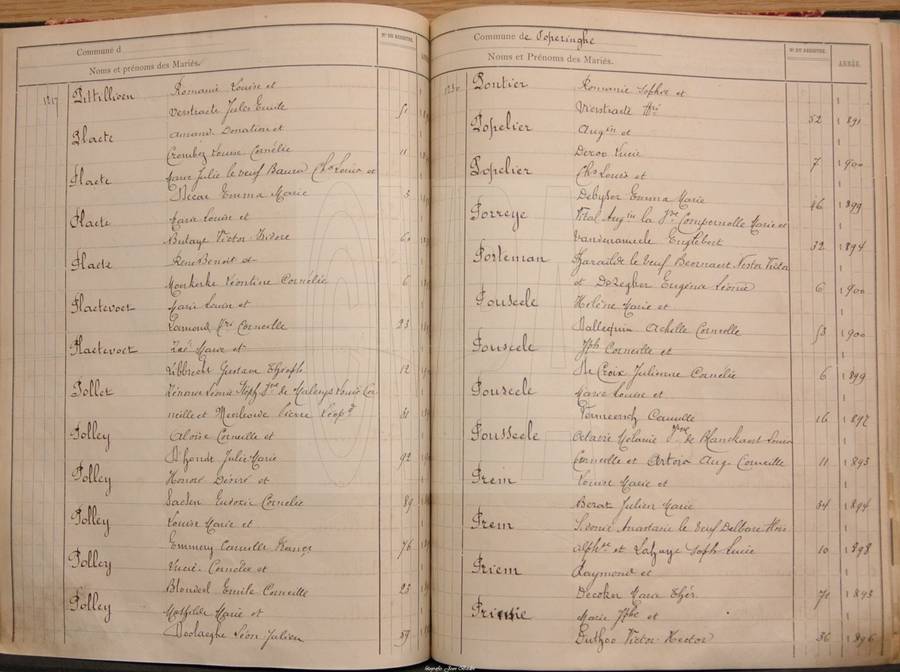 Commune d
N° DU REGISTRE.
Noms et prénoms des Mariés.
1217
Pittillioen Romanie Louise et
Verstraete Jules Emile 51
Placte Amand Donatien et
Crombez Louise Cornélie 11
Placte Marie Julie le veuf Ch. Louis et
Decae Emma Marie 3
Placte Marie Louise et
Butaye Victor Isidore 60
Placte René Benoit et
Monkerke Léontine Cornélie 6
Plactevoet Marie Louise et
Lamond Corneille 23
Plactevoet Zoé Marie et
Libbrecht Gustave Théoph. 12
Pollet Louis Cor-
neille et Pierre Léop. 31
Polley Aloïse Corneille et
D'hondt Julie Marie 92
Polley Honoré Désiré et
Eudoxie Cornélie 89
Polley Louise Marie et
Emmery Camille 76
Polley Lucie Cornélie et
Blondeel Emile Corneille 23
Polley Mathilde Marie et
Doolaeghe Léon Julien 59
Commune de Poperinghe
N° DU REGISTRE.
Noms et Prénoms des Mariés.
ANNÉE.
1230
Pontier Romanie Sophie et
Vierstraete Hri 52 1891
Popelier Augin et
Deroo Lucie 7 1900
Popelier Chs Louis et
Debyser Emma Marie 46 1899
Porreye Vital Augin la Vve Compernolle Marie et
Vandenameele Englebert 32 1894
Porteman Pharaïlde le veuf Beernaert Nestor Victor
et DeZegher Eugénie Léonie 6 1900
Pouseele Hélène Marie et
Dallequin Achille Corneille 53 1900
Pouseele Jph Corneille et
De Croix Julienne Cornélie 6 1899
Pouseele Marie Louise et
Vermeersch Camille 16 1897
Pousseele Octavie Mélanie Vve de Blanckaert Louis
Corneille et Artois Aug. Corneille 11 1893
Prem Louise Marie et
Berat Julien Marie 34 1894
Prem Léonie Anastasie le veuf Delbare
Alphse et Lahaye Soph. Lucie 10 1898
Priem Raymond et
Decoker Marie Thér. 70 1893
Priemie Marie Jphe et
Duthoo Victor Hector 36 1896